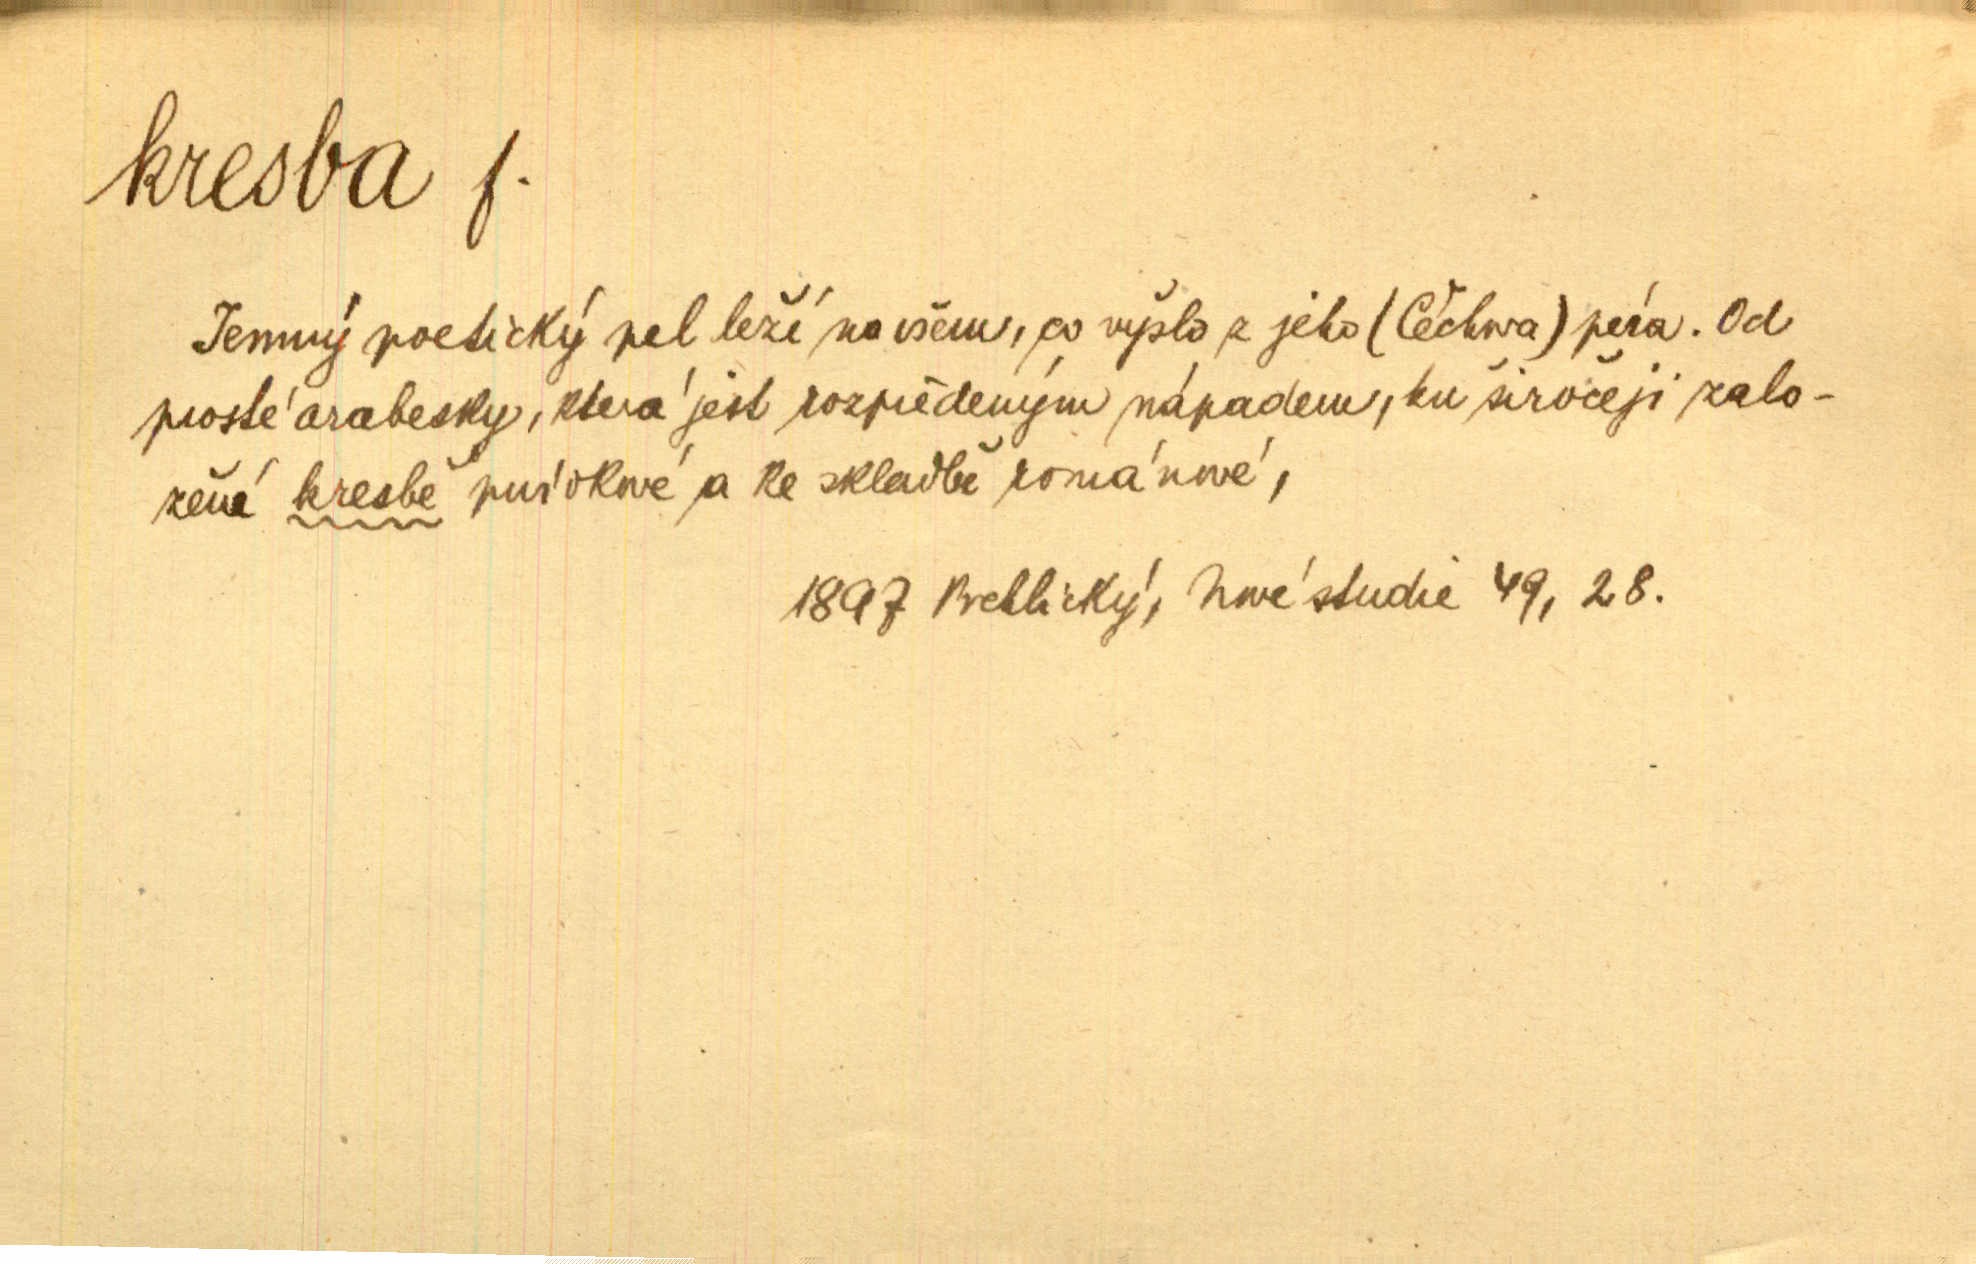 kresba f.
Jemný poetický pel leží na všem, co vyšlo z jeho (Čechova) péra. Od
prosté arabesky, která jest rozpředeným nápadem, ku široceji zalo-
žené kresbě povídkové a ke skladbě románové,
1897 Vrchlický, Nové studie 49, 28.